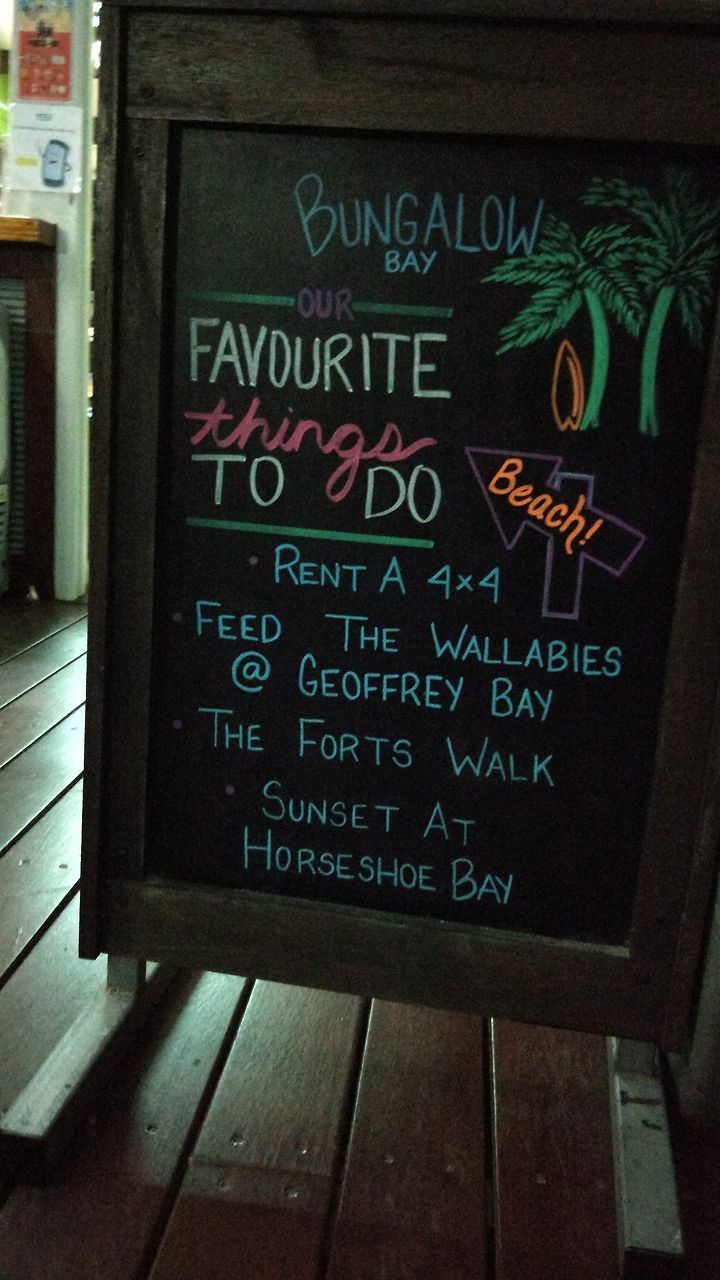 BUNGALOW
BAY
OUR
FAVOURITE
things
TO DO
Beach!
• RENT A 4x4
• FEED THE WALLABIES
@ GEOFFREY BAY
• THE FORTS WALK
• SUNSET AT
HORSESHOE BAY